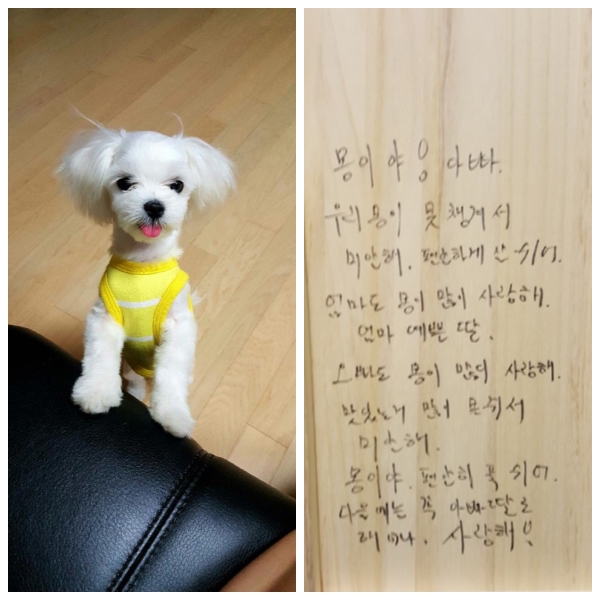 몽이야 아빠.
우리 몽이 못 챙겨서
미안해. 편안하게 쉬어.
엄마도 몽이 많이 사랑해.
엄마 예쁜 딸.
오빠도 몽이 많이 사랑해.
맛있는거 많이 못줘서
미안해.
몽이야. 편안히 푹 쉬어.
다음에는 꼭 아빠딸로
태어나. 사랑해!